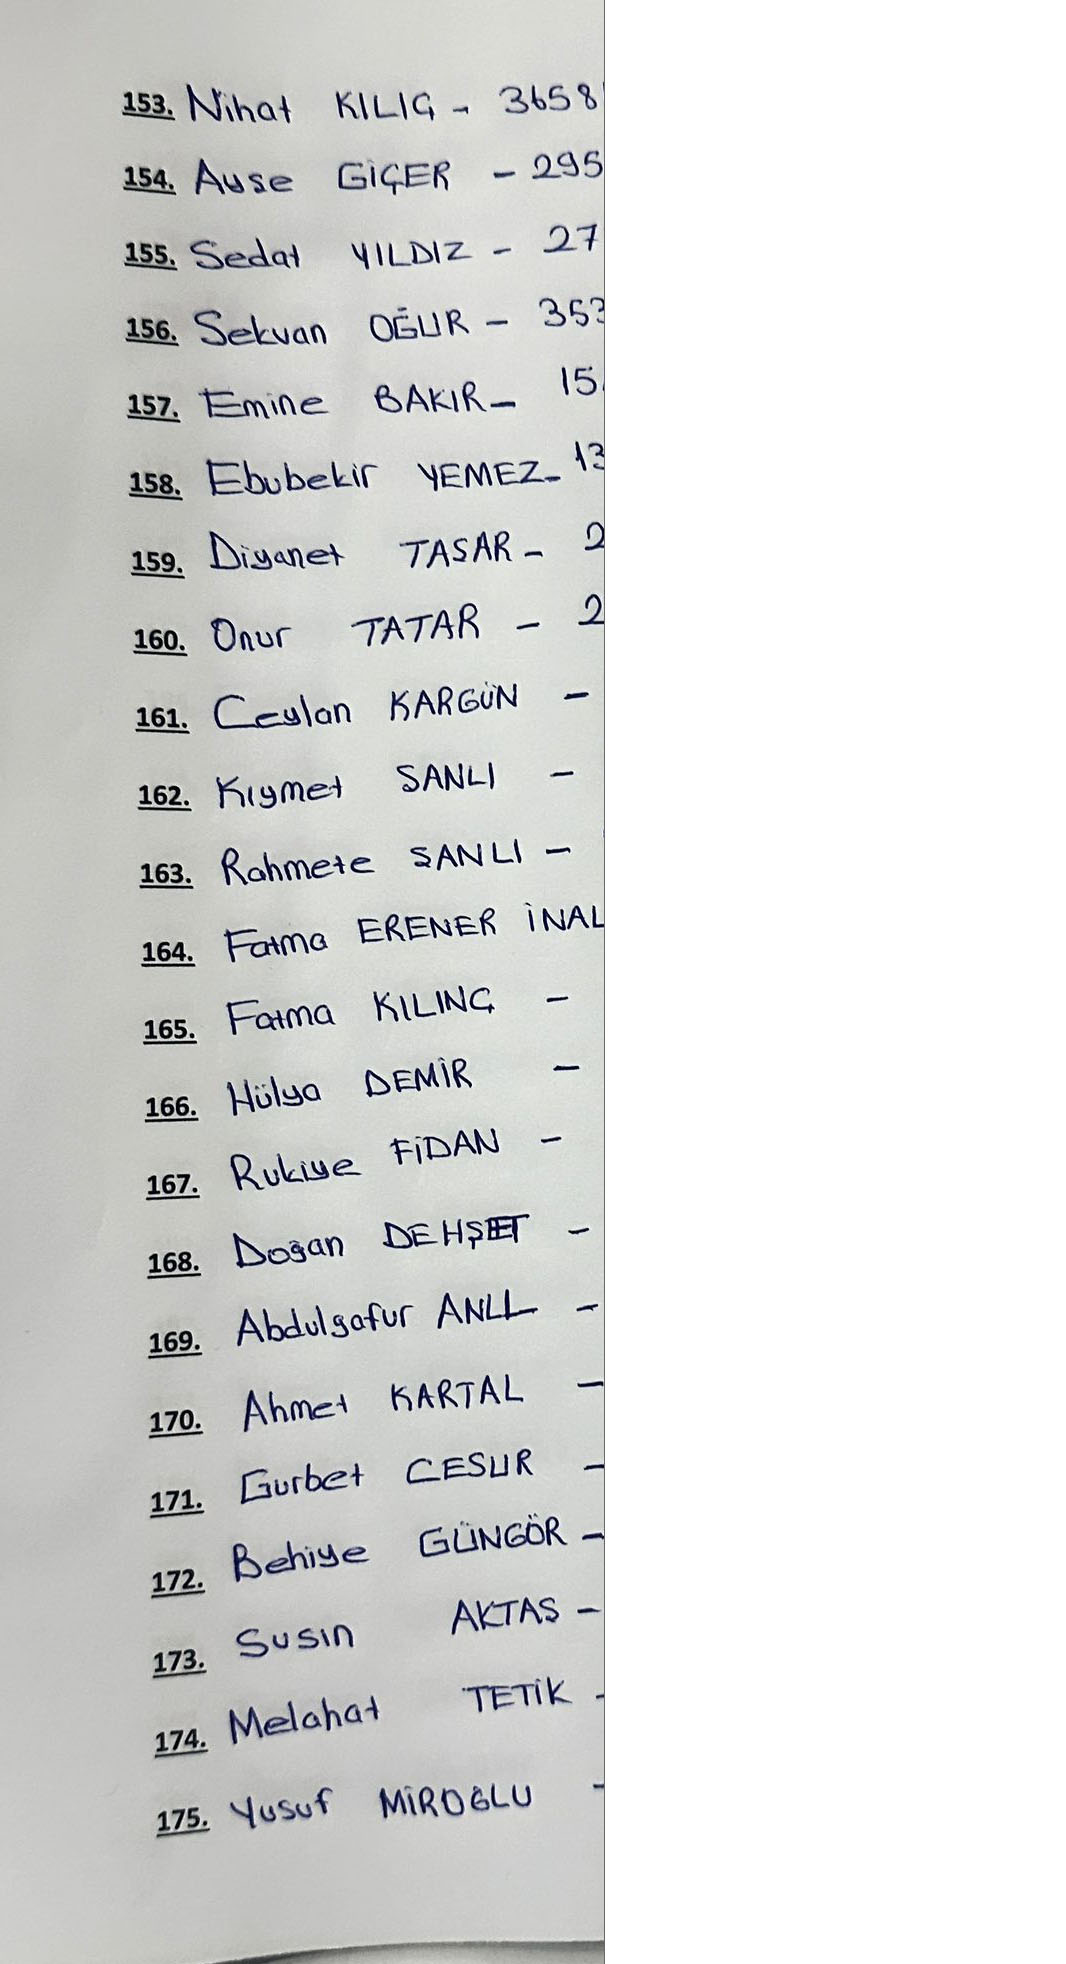 153. Nihat KILIÇ - 3658
154. Ayse GİÇER - 295
155. Sedat YILDIZ - 27
156. Sekvan OĞUR - 353
157. Emine BAKIR - 15
158. Ebubekir YEMEZ - 13
159. Diyanet TASAR - 2
160. Onur TATAR - 2
161. Ceylan KARGÜN -
162. Kıymet SANLI -
163. Rahmete SANLI -
164. Fatma ERENER İNAL
165. Fatma KILINÇ -
166. Hülya DEMİR -
167. Rukiye FİDAN -
168. Doğan DEHŞET -
169. Abdulgafur -
170. Ahmet KARTAL -
171. Gurbet CESUR -
172. Behiye GÜNGÖR -
173. Susin AKTAS -
174. Melahat TETİK -
175. Yusuf MİROĞLU -